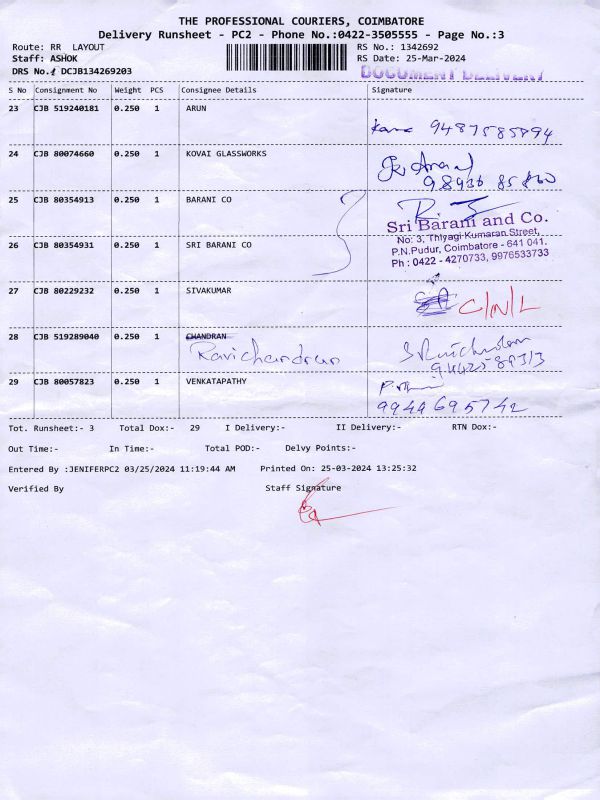 THE PROFESSIONAL COURIERS, COIMBATORE
Delivery Runsheet - PC2 - Phone No.:0422-3505555 - Page No.:3
Route: RR LAYOUT RS No.: 1342692
Staff: ASHOK RS Date: 25-Mar-2024
DRS No.: DCJB134269203 DOCUMENT DELIVERY
S No Consignment No Weight PCS Consignee Details Signature
23 CJB 519240181 0.250 1 ARUN
9487585894
24 CJB 80074660 0.250 1 KOVAI GLASSWORKS
25 CJB 80354913 0.250 1 BARANI CO
Sri Barani and Co.
No: 3, Thiyagi Kumaran Street,
P.N.Pudur, Coimbatore - 641 041.
Ph : 0422 - 4270733, 9976533733
26 CJB 80354931 0.250 1 SRI BARANI CO
27 CJB 80229232 0.250 1 SIVAKUMAR C/N/L
28 CJB 519289040 0.250 1 CHANDRAN
Ravichandran
29 CJB 80057823 0.250 1 VENKATAPATHY
9944695742
Tot. Runsheet:- 3 Total Dox:- 29 I Delivery:- II Delivery:- RTN Dox:-
Out Time:- In Time:- Total POD:- Delvy Points:-
Entered By :JENIFERPC2 03/25/2024 11:19:44 AM Printed On: 25-03-2024 13:25:32
Verified By Staff Signature